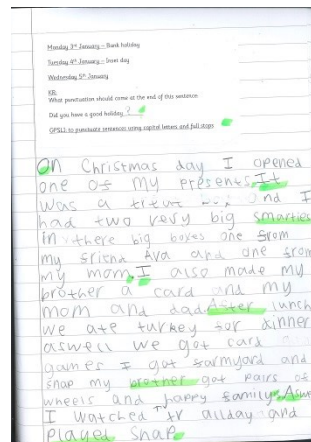 Monday 3rd January – Bank holiday
Tuesday 4th January – Inset day
Wednesday 5th January
KR:
What punctuation should come at the end of this sentence
Did you have a good holiday ?
OPS11: to punctuate sentences using capital letters and full stops
On Christmas day I opened
one of my presents. It
was a and I
had two very big smarties
in there big boxes one from
my friend Ava and one from
my mom. I also made my
brother a card and my
mom and dad. After lunch
we ate turkey for dinner
aswell we got card
games I got farmyard and
snap my brother got pairs of
wheels and happy family. Aswell
I watched tv allday and
played snap.